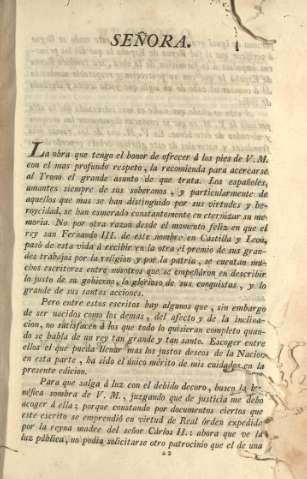 SEÑORA.
La obra que tengo el honor de ofrecer á los pies de V. M.
con el mas profundo respeto, la recomienda para acercarse
al Trono el grande asunto de que trata. Los españoles,
amantes siempre de sus soberanos, y particularmente de
aquellos que mas se han distinguido por sus virtudes y he-
roycidad, se han esmerado constantemente en eternizar su me-
moria. No por otra razon desde el momento feliz en que el
rey san Fernando III. de este nombre en Castilla y Leon,
pasó de esta vida á recibir en la otra el premio de sus gran-
des trabajos por la religion y por la patria, se cuentan mu-
chos escritores entre nosotros que se empeñaron en describir
lo justo de su gobierno, lo glorioso de sus conquistas, y lo
grande de sus santas acciones.
Pero entre estos escritos hay algunos que, sin embargo
de ser nacidos como los demas, del afecto y de la inclina-
cion, no satisfacen á los que todo lo quisieran completo quan-
do se habla de un rey tan grande y tan santo. Escoger entre
ellos el que pueda llenar mas los justos deseos de la Nacion
en esta parte, ha sido el único mérito de mis cuidados en la
presente edicion.
Para que salga á luz con el debido decoro, busco la be-
néfica sombra de V. M., juzgando que de justicia me debo
acoger á ella; porque constando por documentos ciertos que
este escrito se emprendió en virtud de Real órden expedida
por la reyna madre del señor Cárlos II.: ahora que ve la
luz pública, no podia solicitarse otro patrocinio que el de una
a2